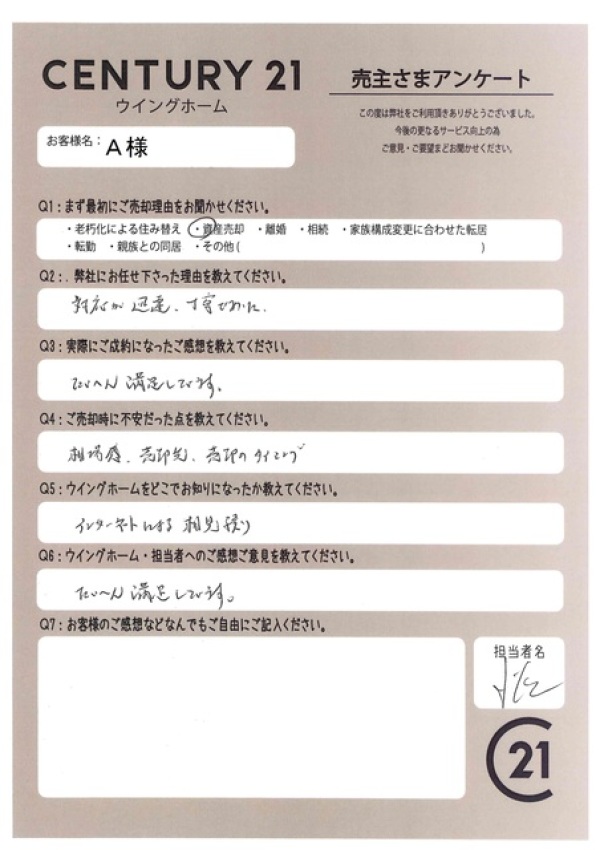 CENTURY 21
ウイングホーム
売主さまアンケート
この度は弊社をご利用頂きありがとうございました。
今後の更なるサービス向上の為
ご意見・ご要望まどお聞かせください。
お客様名： A様
Q1：まず最初にご売却理由をお聞かせください。
・老朽化による住み替え ・資産売却 ・離婚 ・相続 ・家族構成変更に合わせた転居
・転勤 ・親族との同居 ・その他（ ）
Q2：．弊社にお任せ下さった理由を教えてください。
対応が迅速、丁寧だった。
Q3：実際にご成約になったご感想を教えてください。
たいへん満足しています。
Q4：ご売却時に不安だった点を教えてください。
相場感、売却先、売却のタイミング
Q5：ウイングホームをどこでお知りになったか教えてください。
インターネットによる相見積り
Q6：ウイングホーム・担当者へのご感想ご意見を教えてください。
たいへん満足しています。
Q7：お客様のご感想などなんでもご自由にご記入ください。
担当者名
21